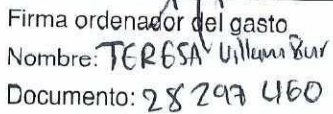 Firma ordenador del gasto
Nombre: TERESA Villami Bur
Documento: 28 297 460